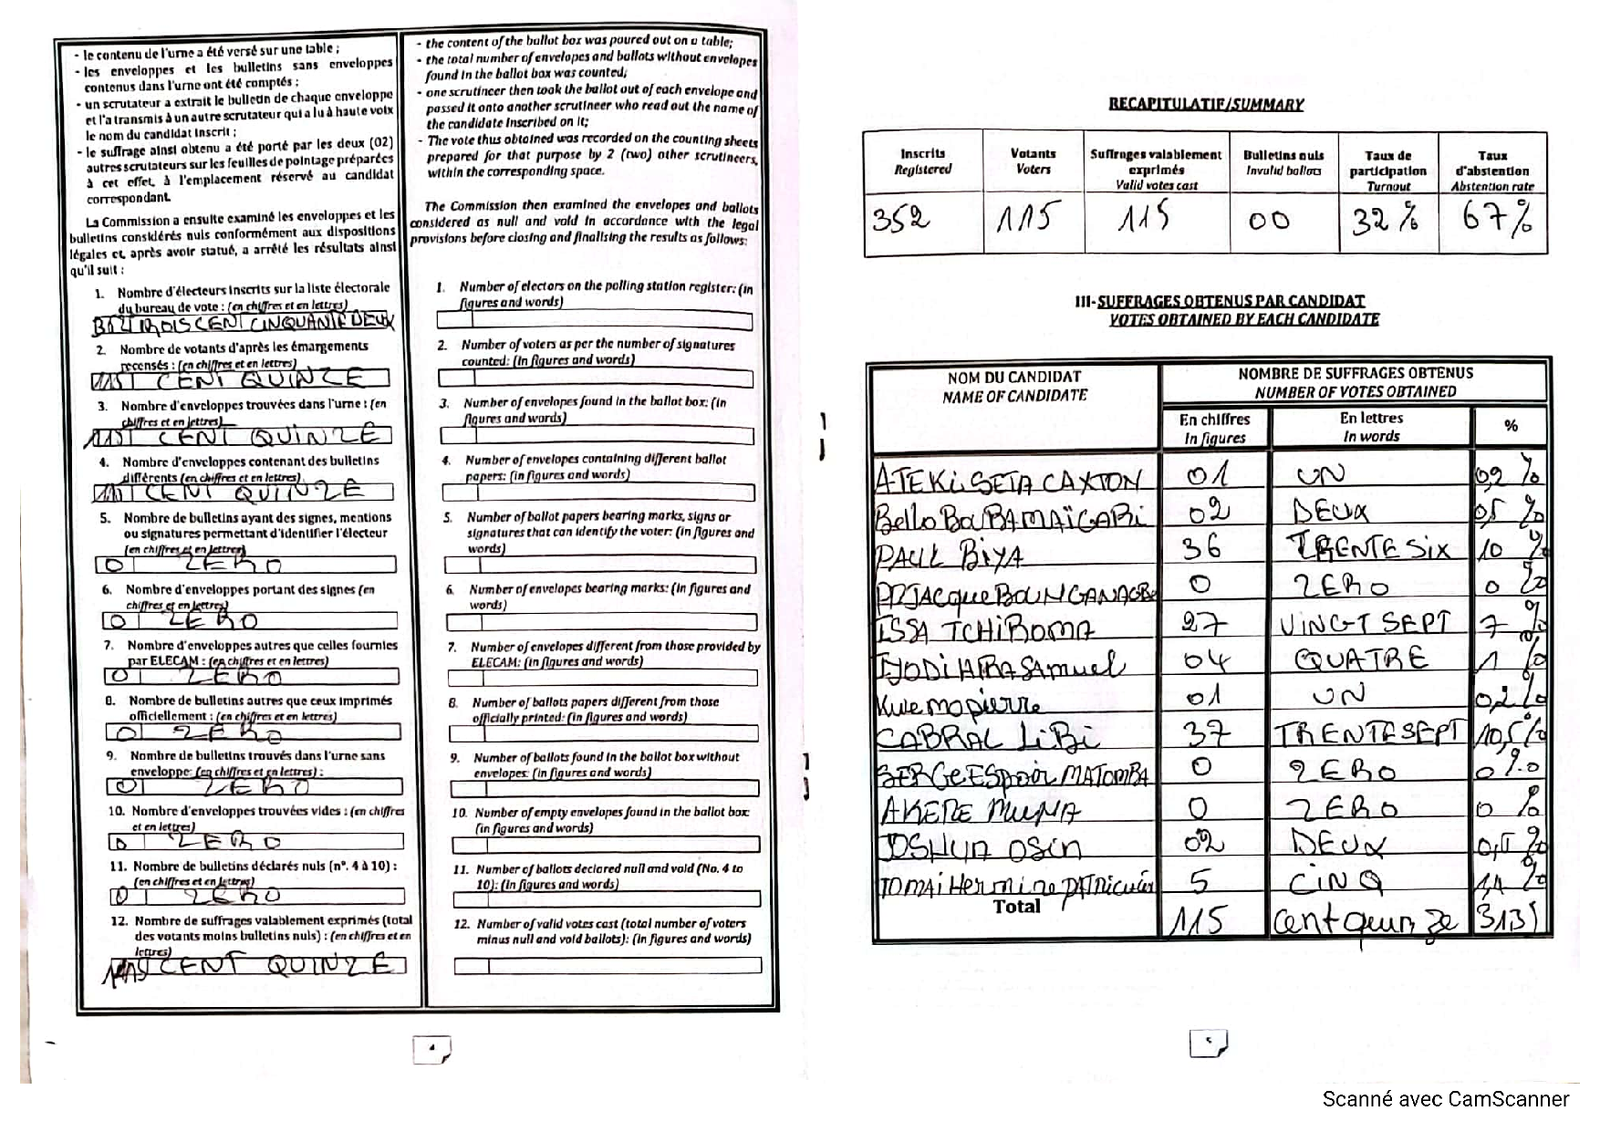 - le contenu de l'urne a été versé sur une table ;
- les enveloppes et les bulletins sans enveloppes
contenus dans l'urne ont été comptés ;
- un scrutateur a extrait le bulletin de chaque enveloppe
et l'a transmis à un autre scrutateur qui a lu à haute voix
le nom du candidat inscrit ;
- le suffrage ainsi obtenu a été porté par les deux (02)
autres scrutateurs sur les feuilles de pointage préparées
à cet effet, à l'emplacement réservé au candidat
correspondant.
La Commission a ensuite examiné les enveloppes et les
bulletins considérés nuls conformément aux dispositions
légales et, après avoir statué, a arrêté les résultats ainsi
qu'il suit :
1. Nombre d'électeurs inscrits sur la liste électorale
du bureau de vote : (en chiffres et en lettres)
TROIS CENT CINQUANTE DEUX
2. Nombre de votants d'après les émargements
recensés : (en chiffres et en lettres)
115 CENT QUINZE
3. Nombre d'enveloppes trouvées dans l'urne : (en
chiffres et en lettres)
115 CENT QUINZE
4. Nombre d'enveloppes contenant des bulletins
différents (en chiffres et en lettres)
CENT QUINZE
5. Nombre de bulletins ayant des signes, mentions
ou signatures permettant d'identifier l'électeur
(en chiffres et en lettres)
0 ZERO
6. Nombre d'enveloppes portant des signes (en
chiffres et en lettres)
0 ZERO
7. Nombre d'enveloppes autres que celles fournies
par ELECAM : (en chiffres et en lettres)
0 ZERO
8. Nombre de bulletins autres que ceux imprimés
officiellement : (en chiffres et en lettres)
0 ZERO
9. Nombre de bulletins trouvés dans l'urne sans
enveloppe: (en chiffres et en lettres) :
0 ZERO
10. Nombre d'enveloppes trouvées vides : (en chiffres
et en lettres)
0 ZERO
11. Nombre de bulletins déclarés nuls (n°. 4 à 10) :
(en chiffres et en lettres)
0 ZERO
12. Nombre de suffrages valablement exprimés (total
des votants moins bulletins nuls) : (en chiffres et en
lettres)
115 CENT QUINZE
- the content of the ballot box was poured out on a table;
- the total number of envelopes and ballots without envelopes
found in the ballot box was counted;
- one scrutineer then took the ballot out of each envelope and
passed it onto another scrutineer who read out the name of
the candidate inscribed on it;
- The vote thus obtained was recorded on the counting sheets
prepared for that purpose by 2 (two) other scrutineers,
within the corresponding space.
The Commission then examined the envelopes and ballots
considered as null and void in accordance with the legal
provisions before closing and finalising the results as follows:
1. Number of electors on the polling station register: (in
figures and words)
2. Number of voters as per the number of signatures
counted: (in figures and words)
3. Number of envelopes found in the ballot box: (in
figures and words)
4. Number of envelopes containing different ballot
papers: (in figures and words)
5. Number of ballot papers bearing marks, signs or
signatures that can identify the voter: (in figures and
words)
6. Number of envelopes bearing marks: (in figures and
words)
7. Number of envelopes different from those provided by
ELECAM: (in figures and words)
8. Number of ballots papers different from those
officially printed: (in figures and words)
9. Number of ballots found in the ballot box without
envelopes: (in figures and words)
10. Number of empty envelopes found in the ballot box:
(in figures and words)
11. Number of ballots declared null and void (No. 4 to
10): (in figures and words)
12. Number of valid votes cast (total number of voters
minus null and void ballots): (in figures and words)
4
RECAPITULATIF/SUMMARY
Inscrits Registered Votants Voters Suffrages valablement exprimés Valid votes cast Bulletins nuls Invalid ballots Taux de participation Turnout Taux d'abstention Abstention rate
352 115 115 00 32 % 67 %
III- SUFFRAGES OBTENUS PAR CANDIDAT
VOTES OBTAINED BY EACH CANDIDATE
NOM DU CANDIDAT NOMBRE DE SUFFRAGES OBTENUS
NAME OF CANDIDATE NUMBER OF VOTES OBTAINED
En chiffres En lettres %
In figures In words
ATEKI SETA CAXTON 01 UN 0,2 %
Bello BOUBA MAÏGARI 02 DEUX 0,5 %
PAUL BIYA 36 TRENTE SIX 10 %
JACque BOUNGANAGBe 0 ZERO 0 %
ISSA TCHIROMA 27 VINGT SEPT 7 %
SAmuel 04 QUATRE 1 %
Kwemo pierre 01 UN 0,2 %
CABRAL LiBi 37 TRENTE SEPT 10,5 %
SERGe ESpoir MATOMBA 0 ZERO 0 %
AKERE MUNA 0 ZERO 0 %
JOSHUA OSIH 02 DEUX 0,5 %
TOMAI Hermine PATRICIA 5 CINQ 1,4 %
Total 115 cent quinze
5
Scanné avec CamScanner